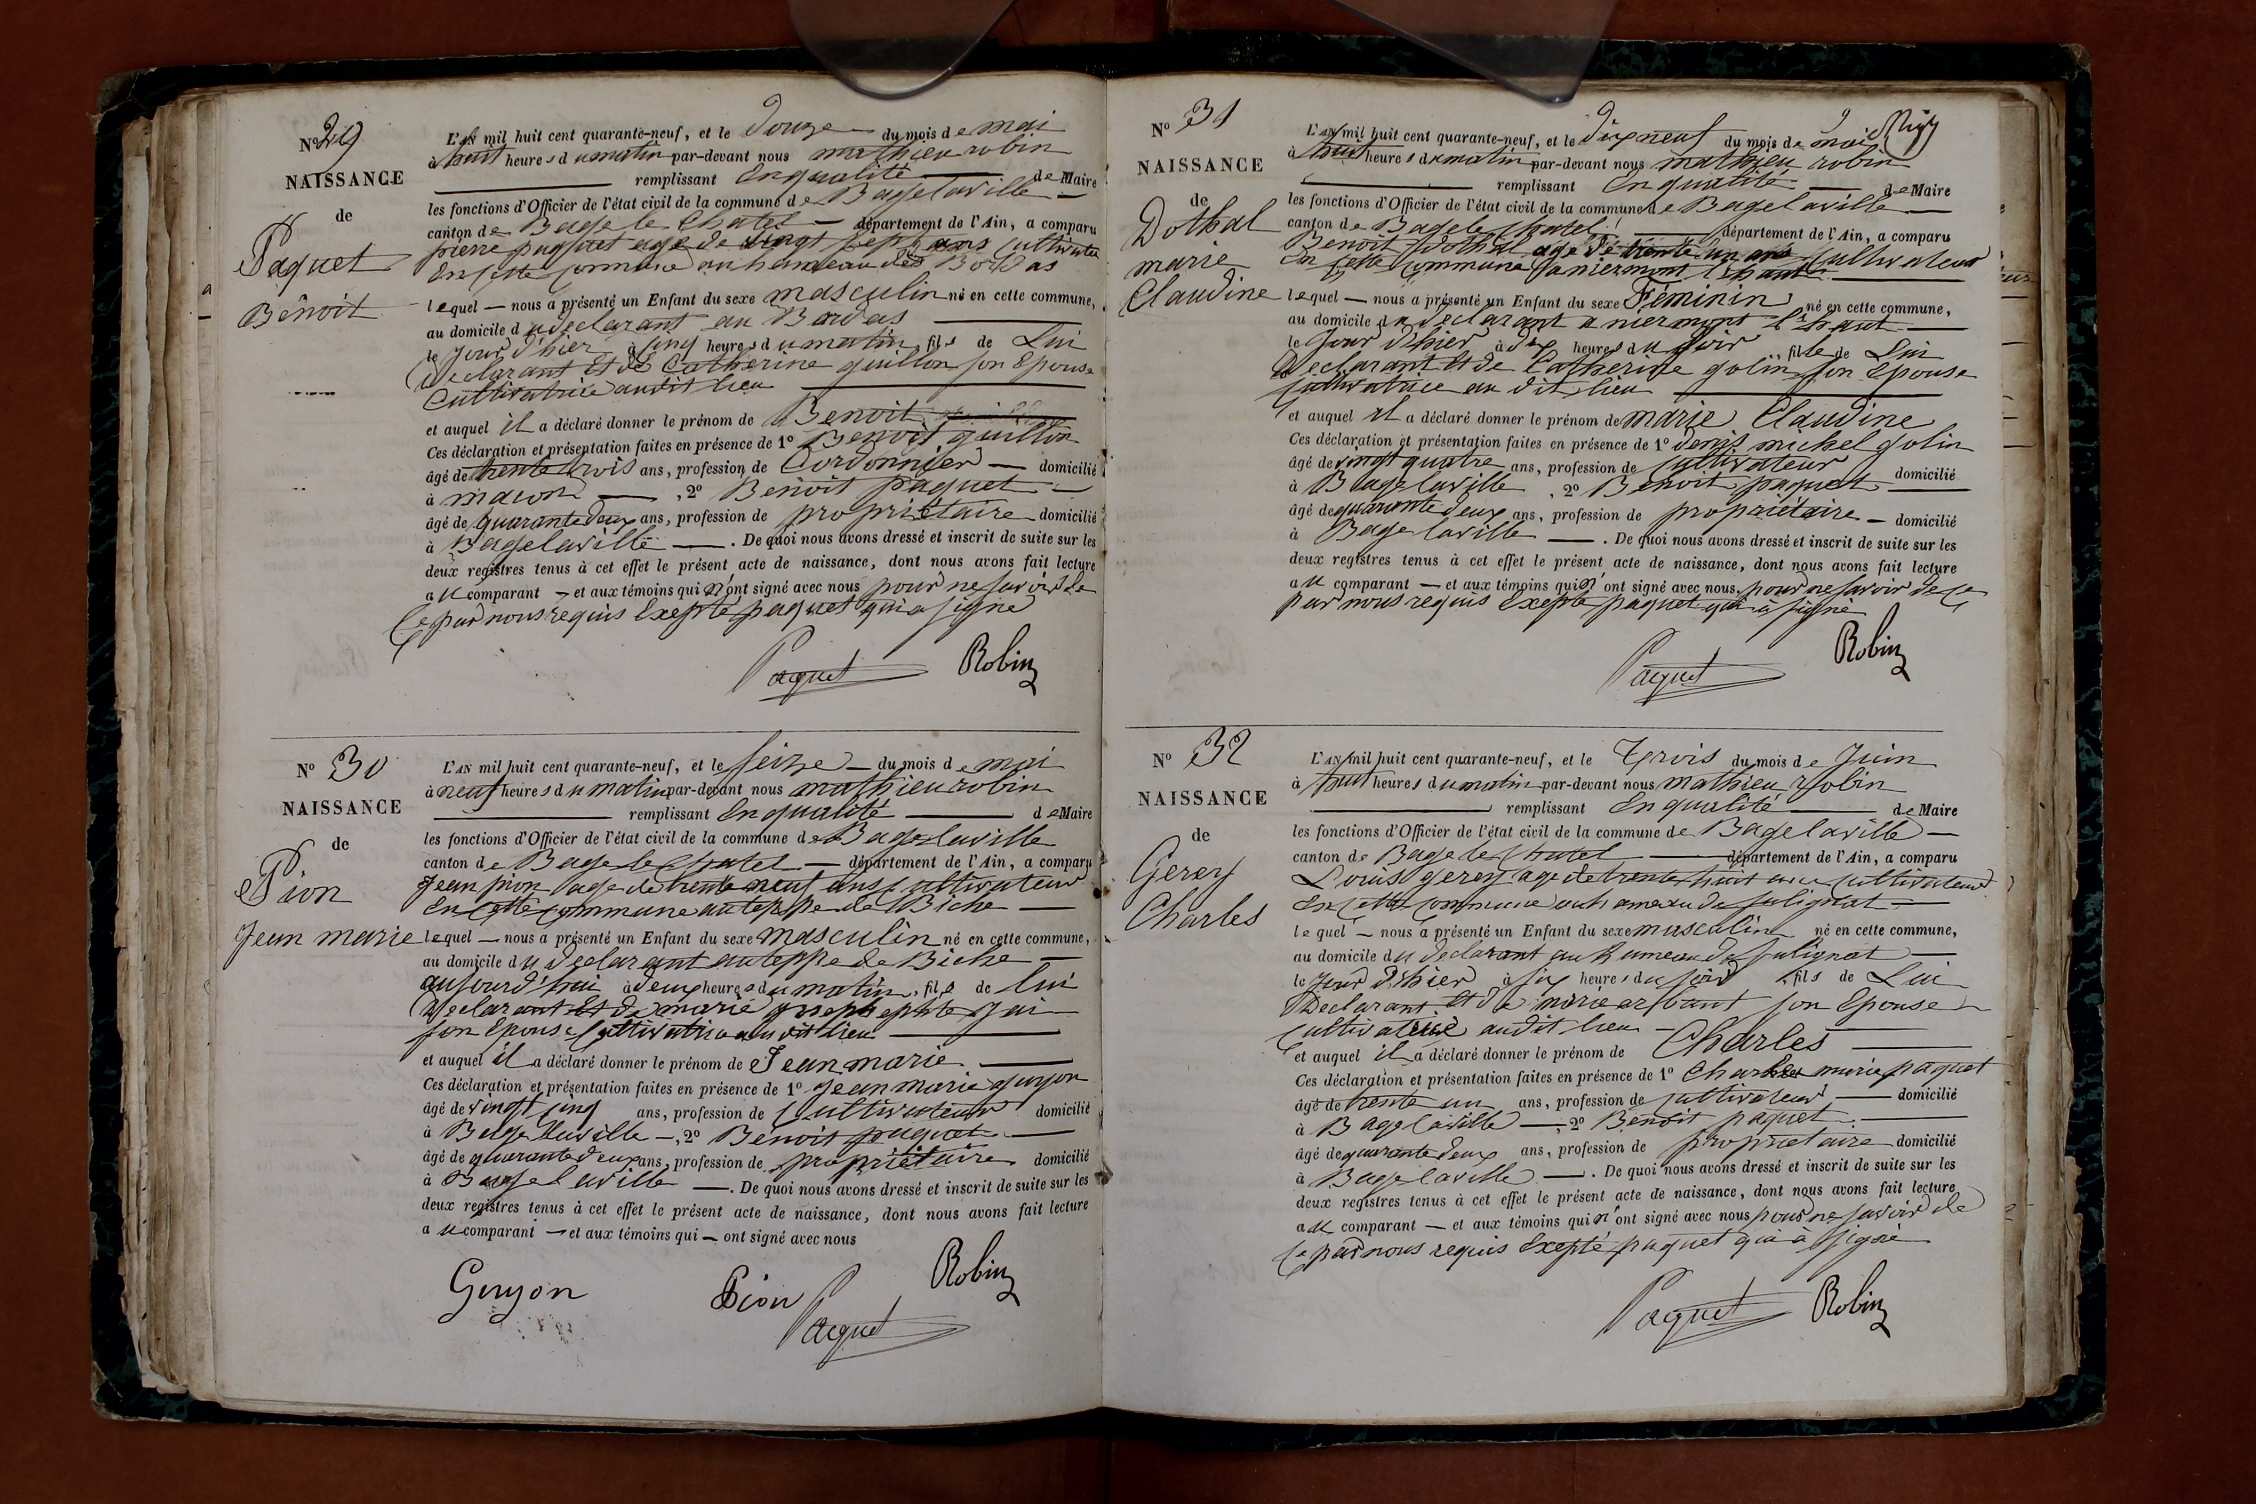 N° 29
NAISSANCE
de
Paquet
Benoit
L'AN mil huit cent quarante-neuf, et le Douze du mois de mai
à huit heures du matin par-devant nous mathieu robin
remplissant En qualité de Maire
les fonctions d'Officier de l'état civil de la commune de Bagelaville
canton de Bage le Chatel département de l'Ain, a comparu
pierre paquet age de vingt sept ans Cultivateur
En cette Commune au hameau des
lequel nous a présenté un Enfant du sexe masculin né en cette commune,
au domicile du declarant au
le Jour d'hier à Cinq heures du matin, fils de Lui
Declarant Et de Catherine guillon son Epouse
Cultivatrice audit lieu
et auquel il a déclaré donner le prénom de Benoit
Ces déclaration et présentation faites en présence de 1° Benoit guillon
âgé de trente trois ans, profession de Cordonnier domicilié
à macon, 2° Benoit paquet
âgé de quarante deux ans, profession de propriétaire domicilié
à Bagelaville. De quoi nous avons dressé et inscrit de suite sur les
deux registres tenus à cet effet le présent acte de naissance, dont nous avons fait lecture
au comparant et aux témoins qui n'ont signé avec nous pour ne savoir de
Ce par nous requis Exepté paquet qui a signé
Paquet Robin
N° 30
NAISSANCE
de
Pion
Jean marie
L'AN mil huit cent quarante-neuf, et le seize du mois de mai
à neuf heures du matin par-devant nous mathieu robin
remplissant En qualité de Maire
les fonctions d'Officier de l'état civil de la commune de Bagelaville
canton de Bage le Chatel département de l'Ain, a comparu
Jean pion age de trente neuf ans Cultivateur
En cette Commune au teppe de Biche
lequel nous a présenté un Enfant du sexe masculin né en cette commune,
au domicile du declarant au teppe de Biche
aujourd'hui à deux heures du matin, fils de lui
Declarant Et de marie
son Epouse Cultivatrice audit lieu
et auquel il a déclaré donner le prénom de Jean marie
Ces déclaration et présentation faites en présence de 1° Jean marie guyon
âgé de vingt cinq ans, profession de Cultivateur domicilié
à Bagelaville, 2° Benoit paquet
âgé de quarante deux ans, profession de propriétaire domicilié
à Bagelaville. De quoi nous avons dressé et inscrit de suite sur les
deux registres tenus à cet effet le présent acte de naissance, dont nous avons fait lecture
au comparant et aux témoins qui ont signé avec nous
Guyon Pion Paquet Robin
N° 31
NAISSANCE
de
Dothal
marie
Claudine
L'AN mil huit cent quarante-neuf, et le Dix neuf du mois de mai
à huit heures du matin par-devant nous mathieu robin
remplissant En qualité de Maire
les fonctions d'Officier de l'état civil de la commune de Bagelaville
canton de Bage le Chatel département de l'Ain, a comparu
Benoit Dothal age de trente un ans Cultivateur
En cette Commune a niermont l'haut
lequel nous a présenté un Enfant du sexe Féminin né en cette commune,
au domicile du declarant a niermont l'haut
le Jour d'hier à dix heures du soir, fille de Lui
Declarant Et de Catherine golin son Epouse
Cultivatrice au dit lieu
et auquel il a déclaré donner le prénom de marie Claudine
Ces déclaration et présentation faites en présence de 1° denis michel golin
âgé de vingt quatre ans, profession de Cultivateur domicilié
à Bagelaville, 2° Benoit paquet
âgé de quarante deux ans, profession de propriétaire domicilié
à Bagelaville. De quoi nous avons dressé et inscrit de suite sur les
deux registres tenus à cet effet le présent acte de naissance, dont nous avons fait lecture
au comparant et aux témoins qui n'ont signé avec nous pour ne savoir de Ce
par nous requis Exepté paquet qui a signé
Paquet Robin
N° 32
NAISSANCE
de
Gerey
Charles
L'AN mil huit cent quarante-neuf, et le Trois du mois de Juin
à huit heures du matin par-devant nous mathieu robin
remplissant En qualité de Maire
les fonctions d'Officier de l'état civil de la commune de Bagelaville
canton de Bage le Chatel département de l'Ain, a comparu
Louis gerey age de trente huit ans Cultivateur
En cette Commune au hameau de salignat
lequel nous a présenté un Enfant du sexe masculin né en cette commune,
au domicile du declarant au hameau de salignat
le Jour d'hier à six heures du soir fils de Lui
Declarant Et de marie son Epouse
Cultivatrice audit lieu
et auquel il a déclaré donner le prénom de Charles
Ces déclaration et présentation faites en présence de 1° Charles marie paquet
âgé de trente un ans, profession de Cultivateur domicilié
à Bagelaville, 2° Benoit paquet
âgé de quarante deux ans, profession de propriétaire domicilié
à Bagelaville. De quoi nous avons dressé et inscrit de suite sur les
deux registres tenus à cet effet le présent acte de naissance, dont nous avons fait lecture
au comparant et aux témoins qui n'ont signé avec nous pour ne savoir de
Ce par nous requis Exepté paquet qui a signé
Paquet Robin